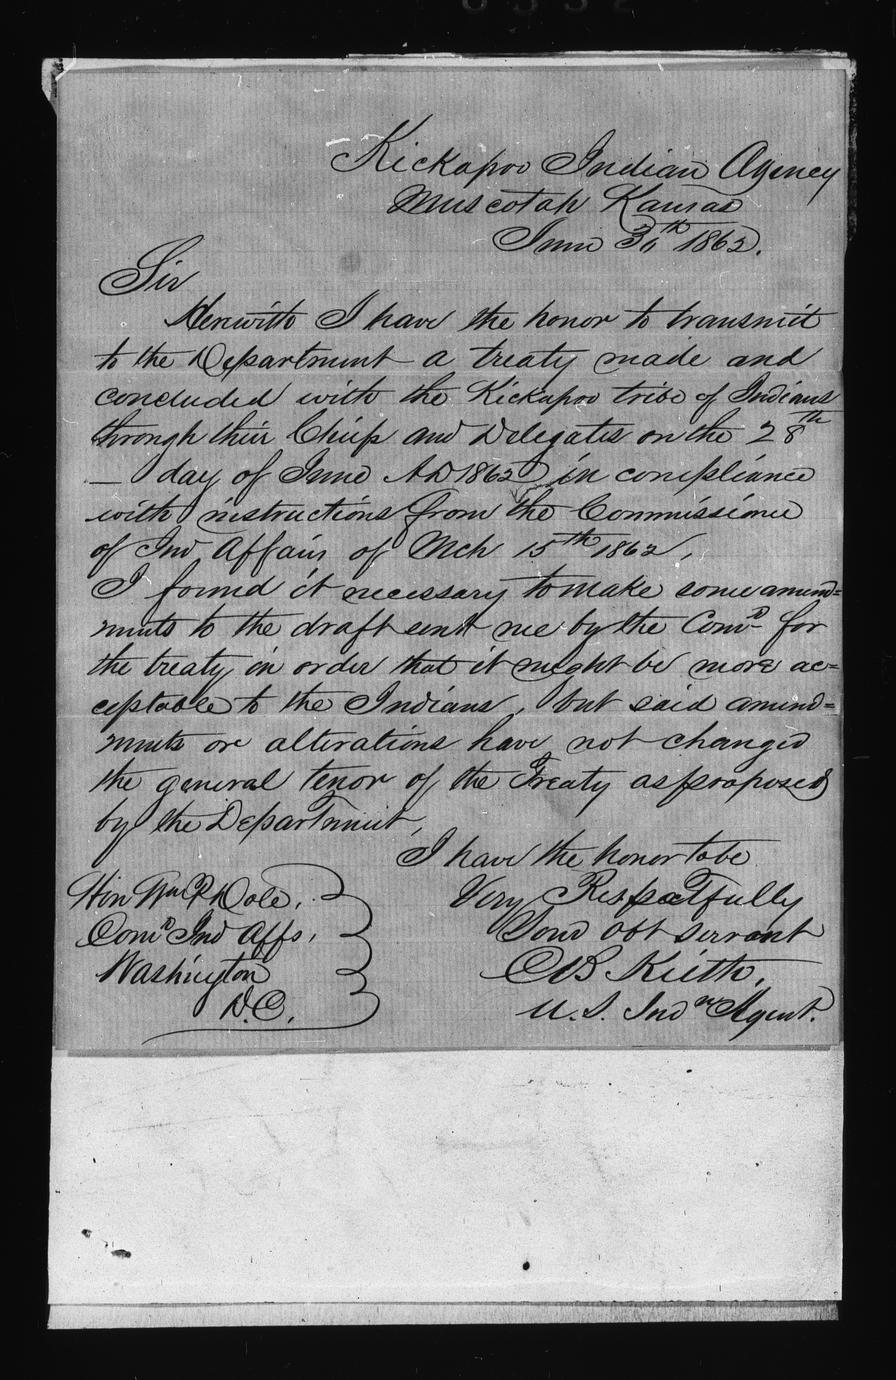 Kickapoo Indian Agency
Muscotah Kansas
June 30th 1862.
Sir
Herewith I have the honor to transmit
to the Department a treaty made and
concluded with the Kickapoo tribe of Indians
through their Chiefs and Delegates on the 28th
— day of June AD 1862 in compliance
with instructions from the Commissioner
of Ind Affairs of Mch 15th 1862,
I found it necessary to make some amend=
ments to the draft sent me by the Comr for
the treaty in order that it might be more ac=
ceptable to the Indians, but said amend=
ments or alterations have not changed
the general tenor of the Treaty as proposed
by the Department,
I have the honor to be
Very Respectfully
Your obt servant
C B Keith,
U. S. Indn Agent.
Hon Wm P. Dole,
Comr Ind Affs,
Washington
D.C.